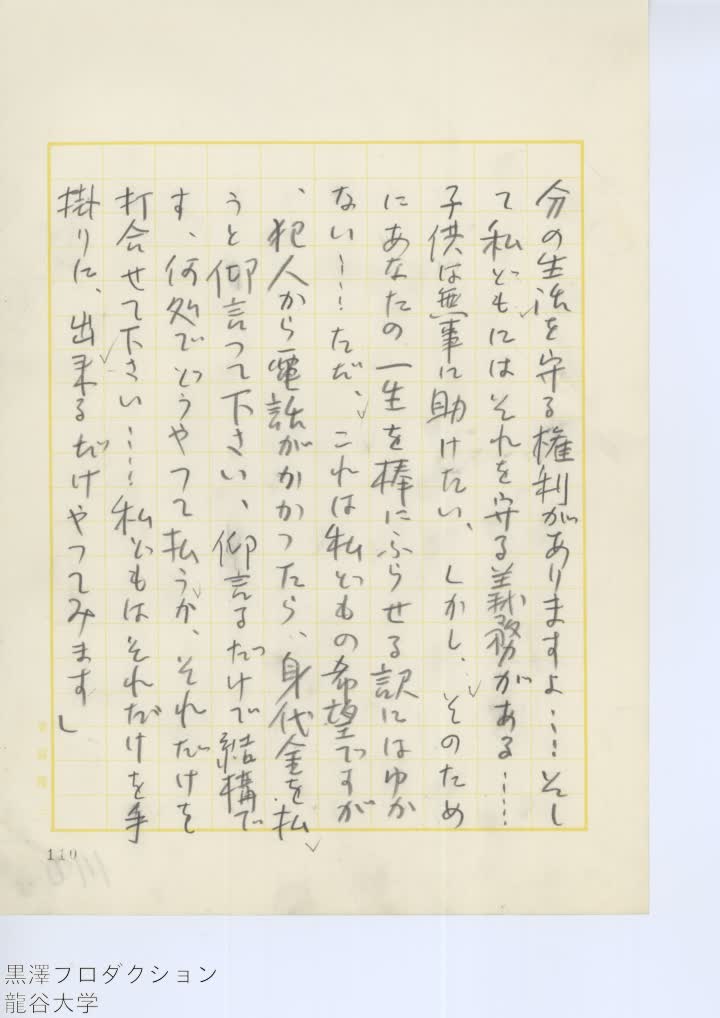 分の生活を守る権利がありますよ…! そし
て私どもにはそれを守る義務がある……
子供は無事に助けたい、しかし、そのため
にあなたの一生を棒にふらせる訳にはゆか
ない……! ただ、これは私どもの希望ですが
、犯人から電話がかかつたら、身代金を払
うと仰言つて下さい、仰言るだけで結構で
す、何処でどうやつて払うか、それだけを
打合せて下さい……! 私どもはそれだけを手
掛りに、出来るだけやつてみます」
110
黒澤プロダクション
龍谷大学